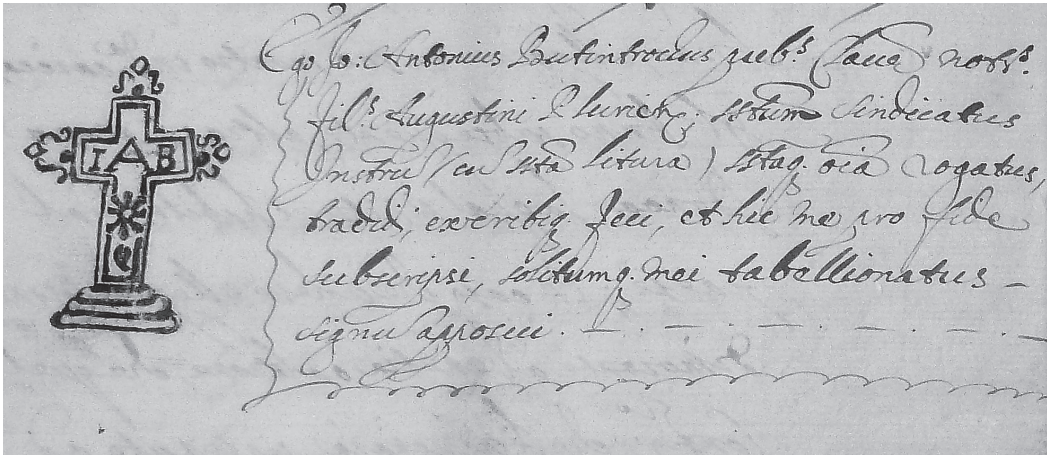 I A B
Ego Jo: Antonius Butintrochus pub.s Clavae not.s
fil.s Augustini ; sstum Sindicatus
Instru (cu ssta litura) sstaq. oia rogatus,
tradidi, exeribiq. feci, et hic me pro fide
subscripsi, solitumq. mei tabellionatus
signu apposui.